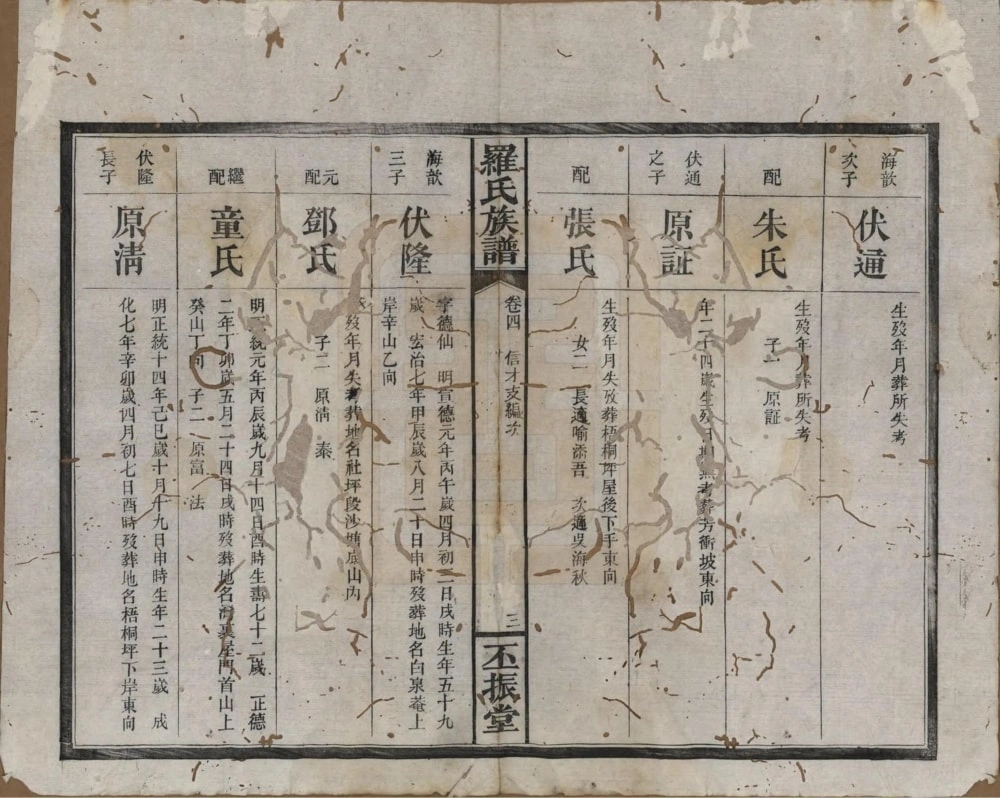 海歆
次子
伏通
生殁年月葬所失考
配
朱氏
生殁年月葬所失考
子一 原証
伏通
之子
原証
年二十四歲生殁 葬芳衝坡東向
配
張氏
生殁年月失攷葬梧桐坪屋後下手東向
女二 長適喻添吾 次適吳海秋
羅氏族譜
卷四 信才支編次
三
丕振堂
海歆
三子
伏隆
字德仙 明宣德元年丙午歲四月初二日戌時生年五十九
歲 宏治七年甲辰歲八月二十日申時殁葬地名白泉菴上
岸辛山乙向
元配
鄧氏
殁年月失考葬地名社坪段沙 山丙
子二 原淸 泰
繼配
童氏
明 統元年丙辰歲九月十四日酉時生壽七十二歲 正德
二年丁卯歲五月二十四日戌時殁葬地名灣裏屋門首山上
癸山丁向 子二 原富 法
伏隆
長子
原淸
明正統十四年己巳歲十月十九日申時生年二十三歲 成
化七年辛卯歲四月初七日酉時殁葬地名梧桐坪下岸東向